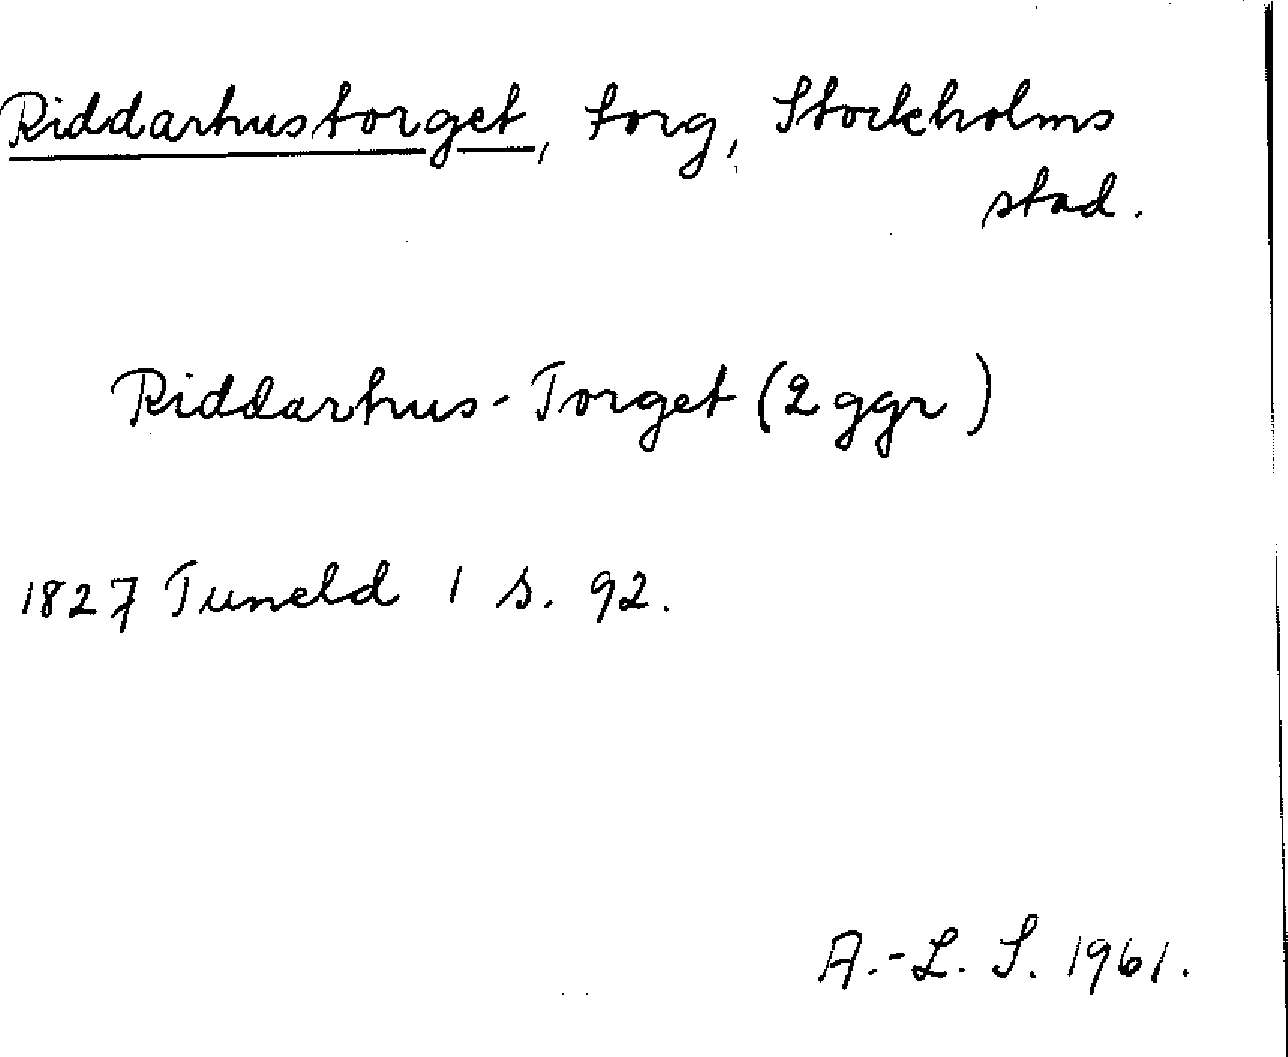 Riddarhustorget, torg, Stockholms
stad.
Riddarhus-Torget (2 ggr)
1827 Tuneld 1 s. 92.
A.-L. S. 1961.